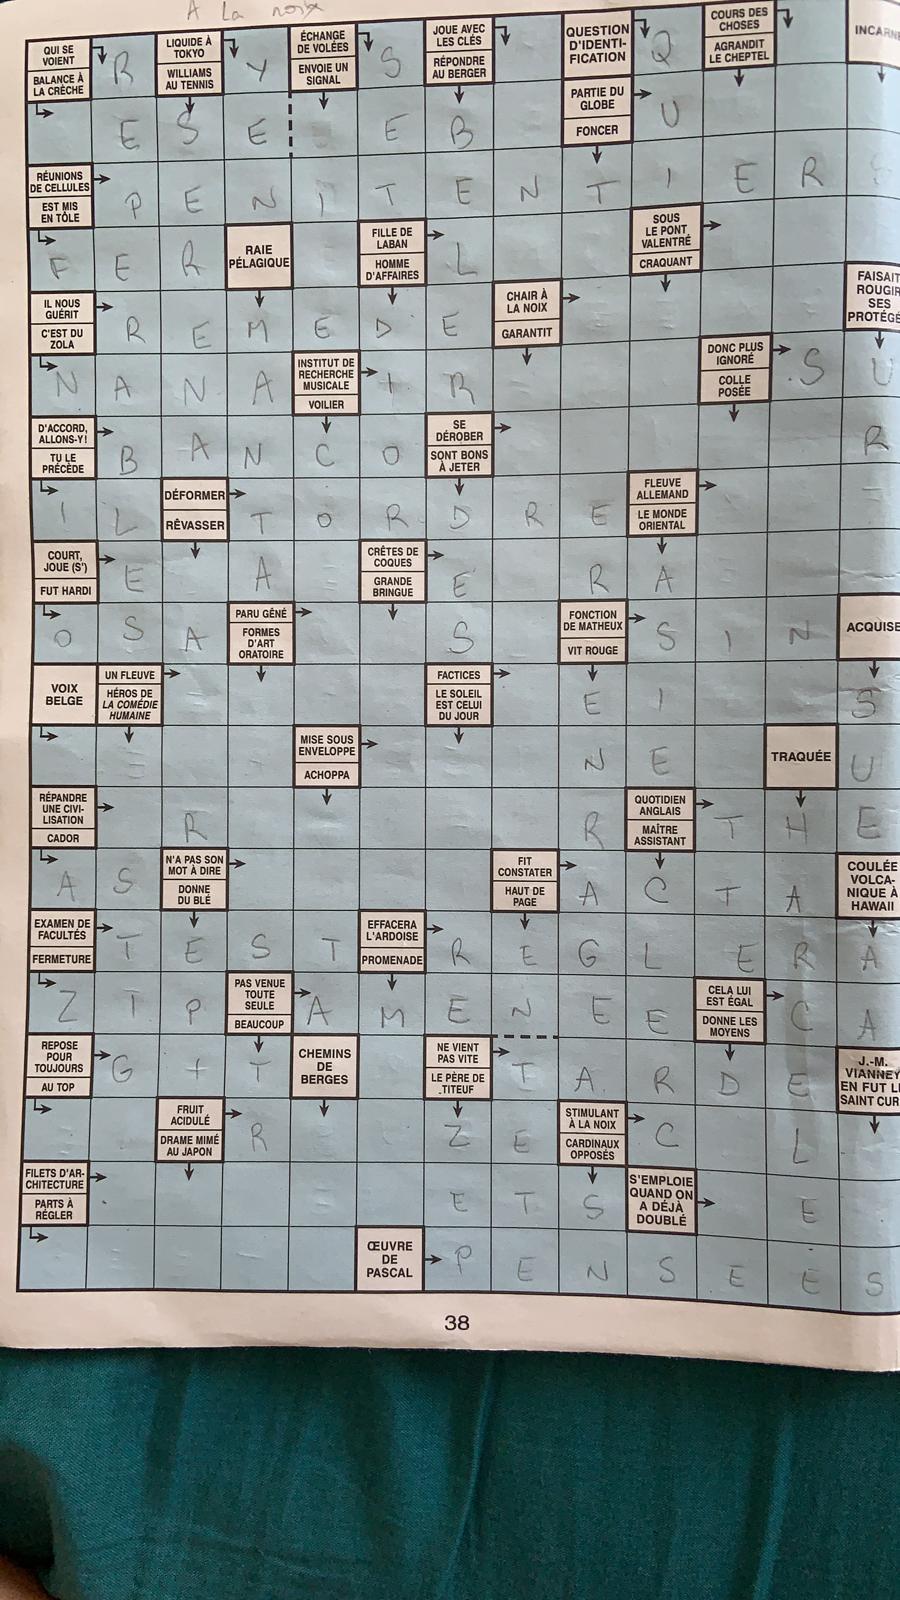 A La noix
QUI SE VOIENT
BALANCE À LA CRÈCHE
R
LIQUIDE À TOKYO
WILLIAMS AU TENNIS
Y
ÉCHANGE DE VOLÉES
ENVOIE UN SIGNAL
S
JOUE AVEC LES CLÉS
RÉPONDRE AU BERGER
QUESTION D'IDENTI-FICATION
Q
COURS DES CHOSES
AGRANDIT LE CHEPTEL
E S E E B
PARTIE DU GLOBE
FONCER
U
RÉUNIONS DE CELLULES
EST MIS EN TÔLE
P E N I T E N T I E R S
F E R
RAIE PÉLAGIQUE
FILLE DE LABAN
HOMME D'AFFAIRES
L
SOUS LE PONT VALENTRÉ
CRAQUANT
IL NOUS GUÉRIT
C'EST DU ZOLA
R E M E D E
CHAIR À LA NOIX
GARANTIT
FAISAIT ROUGIR SES PROTÉGÉ
N A N A
INSTITUT DE RECHERCHE MUSICALE
VOILIER
I R
DONC PLUS IGNORÉ
COLLE POSÉE
S U
D'ACCORD, ALLONS-Y!
TU LE PRÉCÈDE
B A N C O
SE DÉROBER
SONT BONS À JETER
R
I L
DÉFORMER
RÊVASSER
T O R D R E
FLEUVE ALLEMAND
LE MONDE ORIENTAL
COURT, JOUE (S')
FUT HARDI
E A
CRÊTES DE COQUES
GRANDE BRINGUE
E R A
O S A
PARU GÊNÉ
FORMES D'ART ORATOIRE
S
FONCTION DE MATHEUX
VIT ROUGE
S I N
ACQUISE
VOIX BELGE
UN FLEUVE
HÉROS DE LA COMÉDIE HUMAINE
FACTICES
LE SOLEIL EST CELUI DU JOUR
E I S
MISE SOUS ENVELOPPE
ACHOPPA
N E
TRAQUÉE
U
RÉPANDRE UNE CIVI-LISATION
CADOR
R R
QUOTIDIEN ANGLAIS
MAÎTRE ASSISTANT
T H E
A S
N'A PAS SON MOT À DIRE
DONNE DU BLÉ
FIT CONSTATER
HAUT DE PAGE
A C T A
COULÉE VOLCA-NIQUE À HAWAII
EXAMEN DE FACULTÉS
FERMETURE
T E S T
EFFACERA L'ARDOISE
PROMENADE
R E G L E R A
Z I P
PAS VENUE TOUTE SEULE
BEAUCOUP
A M E N E E
CELA LUI EST ÉGAL
DONNE LES MOYENS
C A
REPOSE POUR TOUJOURS
AU TOP
G I T
CHEMINS DE BERGES
NE VIENT PAS VITE
LE PÈRE DE TITEUF
T A R D E
J.-M. VIANNEY EN FUT LE SAINT CUR
FRUIT ACIDULÉ
DRAME MIMÉ AU JAPON
R Z E
STIMULANT À LA NOIX
CARDINAUX OPPOSÉS
C L
FILETS D'AR-CHITECTURE
PARTS À RÉGLER
E T S
S'EMPLOIE QUAND ON A DÉJÀ DOUBLÉ
E
ŒUVRE DE PASCAL
P E N S E E S
38